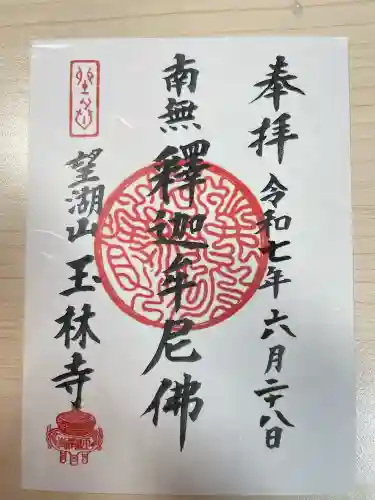 奉拝
令和七年六月二十八日
南無釋迦牟尼佛
望湖山
玉林寺